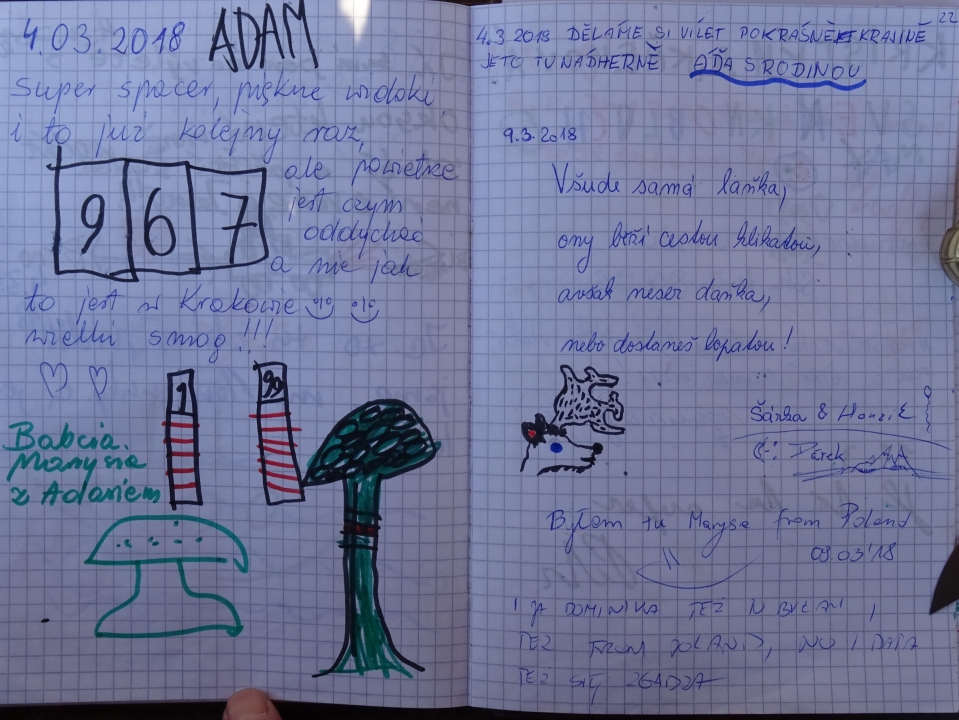 4.03.2018 ADAM
Super spacer, piękne widoki
i to już kolejny raz,
ale powietrze
jest czym
oddychać
a nie jak
9 6 7
to jest w Krakowie
wielki smog!!!
1
99
Babcia
Marysia
z Adamem
22
4.3 2018 DĚLÁME SI VÍLET PO KRÁSNÉ KRAJINĚ
JETO TU NÁDHERNĚ AĎA S RODINOU
9.3.2018
Všude samá laňka,
ony běží cestou klikatou,
avšak neser daňka,
nebo dostaneš lopatou!
Šárka & Honzík
Párek
Byłem tu Marysa from Poland
09.03'18
I JA DOMINIKA TEŻ TU BYŁAM,
TEŻ FROM POLAND, NO I DATA
TEŻ SIĘ ZGADZA